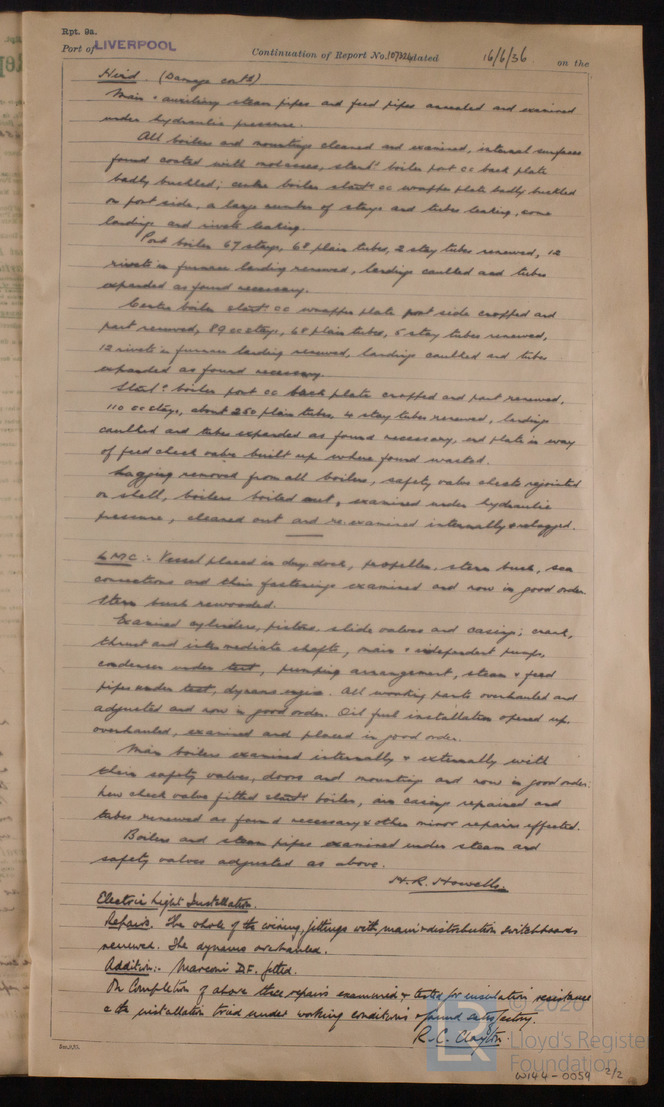 Rpt. 9a.
Port of LIVERPOOL
Continuation of Report No. dated 16/6/36 on the
(Damage contd)
Main & auxiliary steam pipes and feed pipes annealed and examined
under hydraulic pressure.
All boilers and mountings cleaned and examined, internal surfaces
found coated with molasses, starbd boiler port cc back plate
badly buckled; centre boiler starbd cc wrapper plate badly buckled
on port side, a large number of stays and tubes leaking, some
landings and rivets leaking.
Port boiler 67 stays, 68 plain tubes, 2 stay tubes renewed, 12
rivets in furnace landing renewed, landings caulked and tubes
expanded as found necessary.
Centre boiler starbd cc wrapper plate port side cropped and
part renewed, 89 cc stays, 68 plain tubes, 5 stay tubes renewed,
12 rivets in furnace landing renewed, landings caulked and tubes
expanded as found necessary.
Starbd boiler port cc back plate cropped and part renewed,
110 cc stays, about 250 plain tubes, 4 stay tubes renewed, landings
caulked and tubes expanded as found necessary, end plate in way
of feed check valve built up where found wasted.
Lagging removed from all boilers, safety valve chests rejointed
on shell, boilers boiled out, examined under hydraulic
pressure, cleaned out and re-examined internally & relagged.
LMC:- Vessel placed in dry dock, propeller, stern bush, sea
connections and their fastenings examined and now in good order.
Stern bush rewooded.
Examined cylinders, pistons, slide valves and casings; crank,
thrust and intermediate shafts, main & independent pumps,
condenser under test, pumping arrangement, steam & feed
pipes under test, dynamo engine. All working parts overhauled and
adjusted and now in good order. Oil fuel installation opened up
overhauled, examined and placed in good order.
Main boilers examined internally & externally with
their safety valves, doors and mountings and now in good order.
New check valve fitted starbd boiler, air casings repaired and
tubes renewed as found necessary & other minor repairs effected.
Boilers and steam pipes examined under steam and
safety valves adjusted as above.
H.R. Howells.
Electric Light Installation.
Repairs. The whole of the wiring, fittings with main & distribution switchboards
renewed. The dynamo overhauled.
Addition:- Marconi D.F. fitted.
On Completion of above these repairs examined & tested for insulation resistance
& the installation tried under working conditions & found satisfactory.
R.C. Clayton.
© 2020
Lloyd's Register
Foundation
W144-0059 2/2